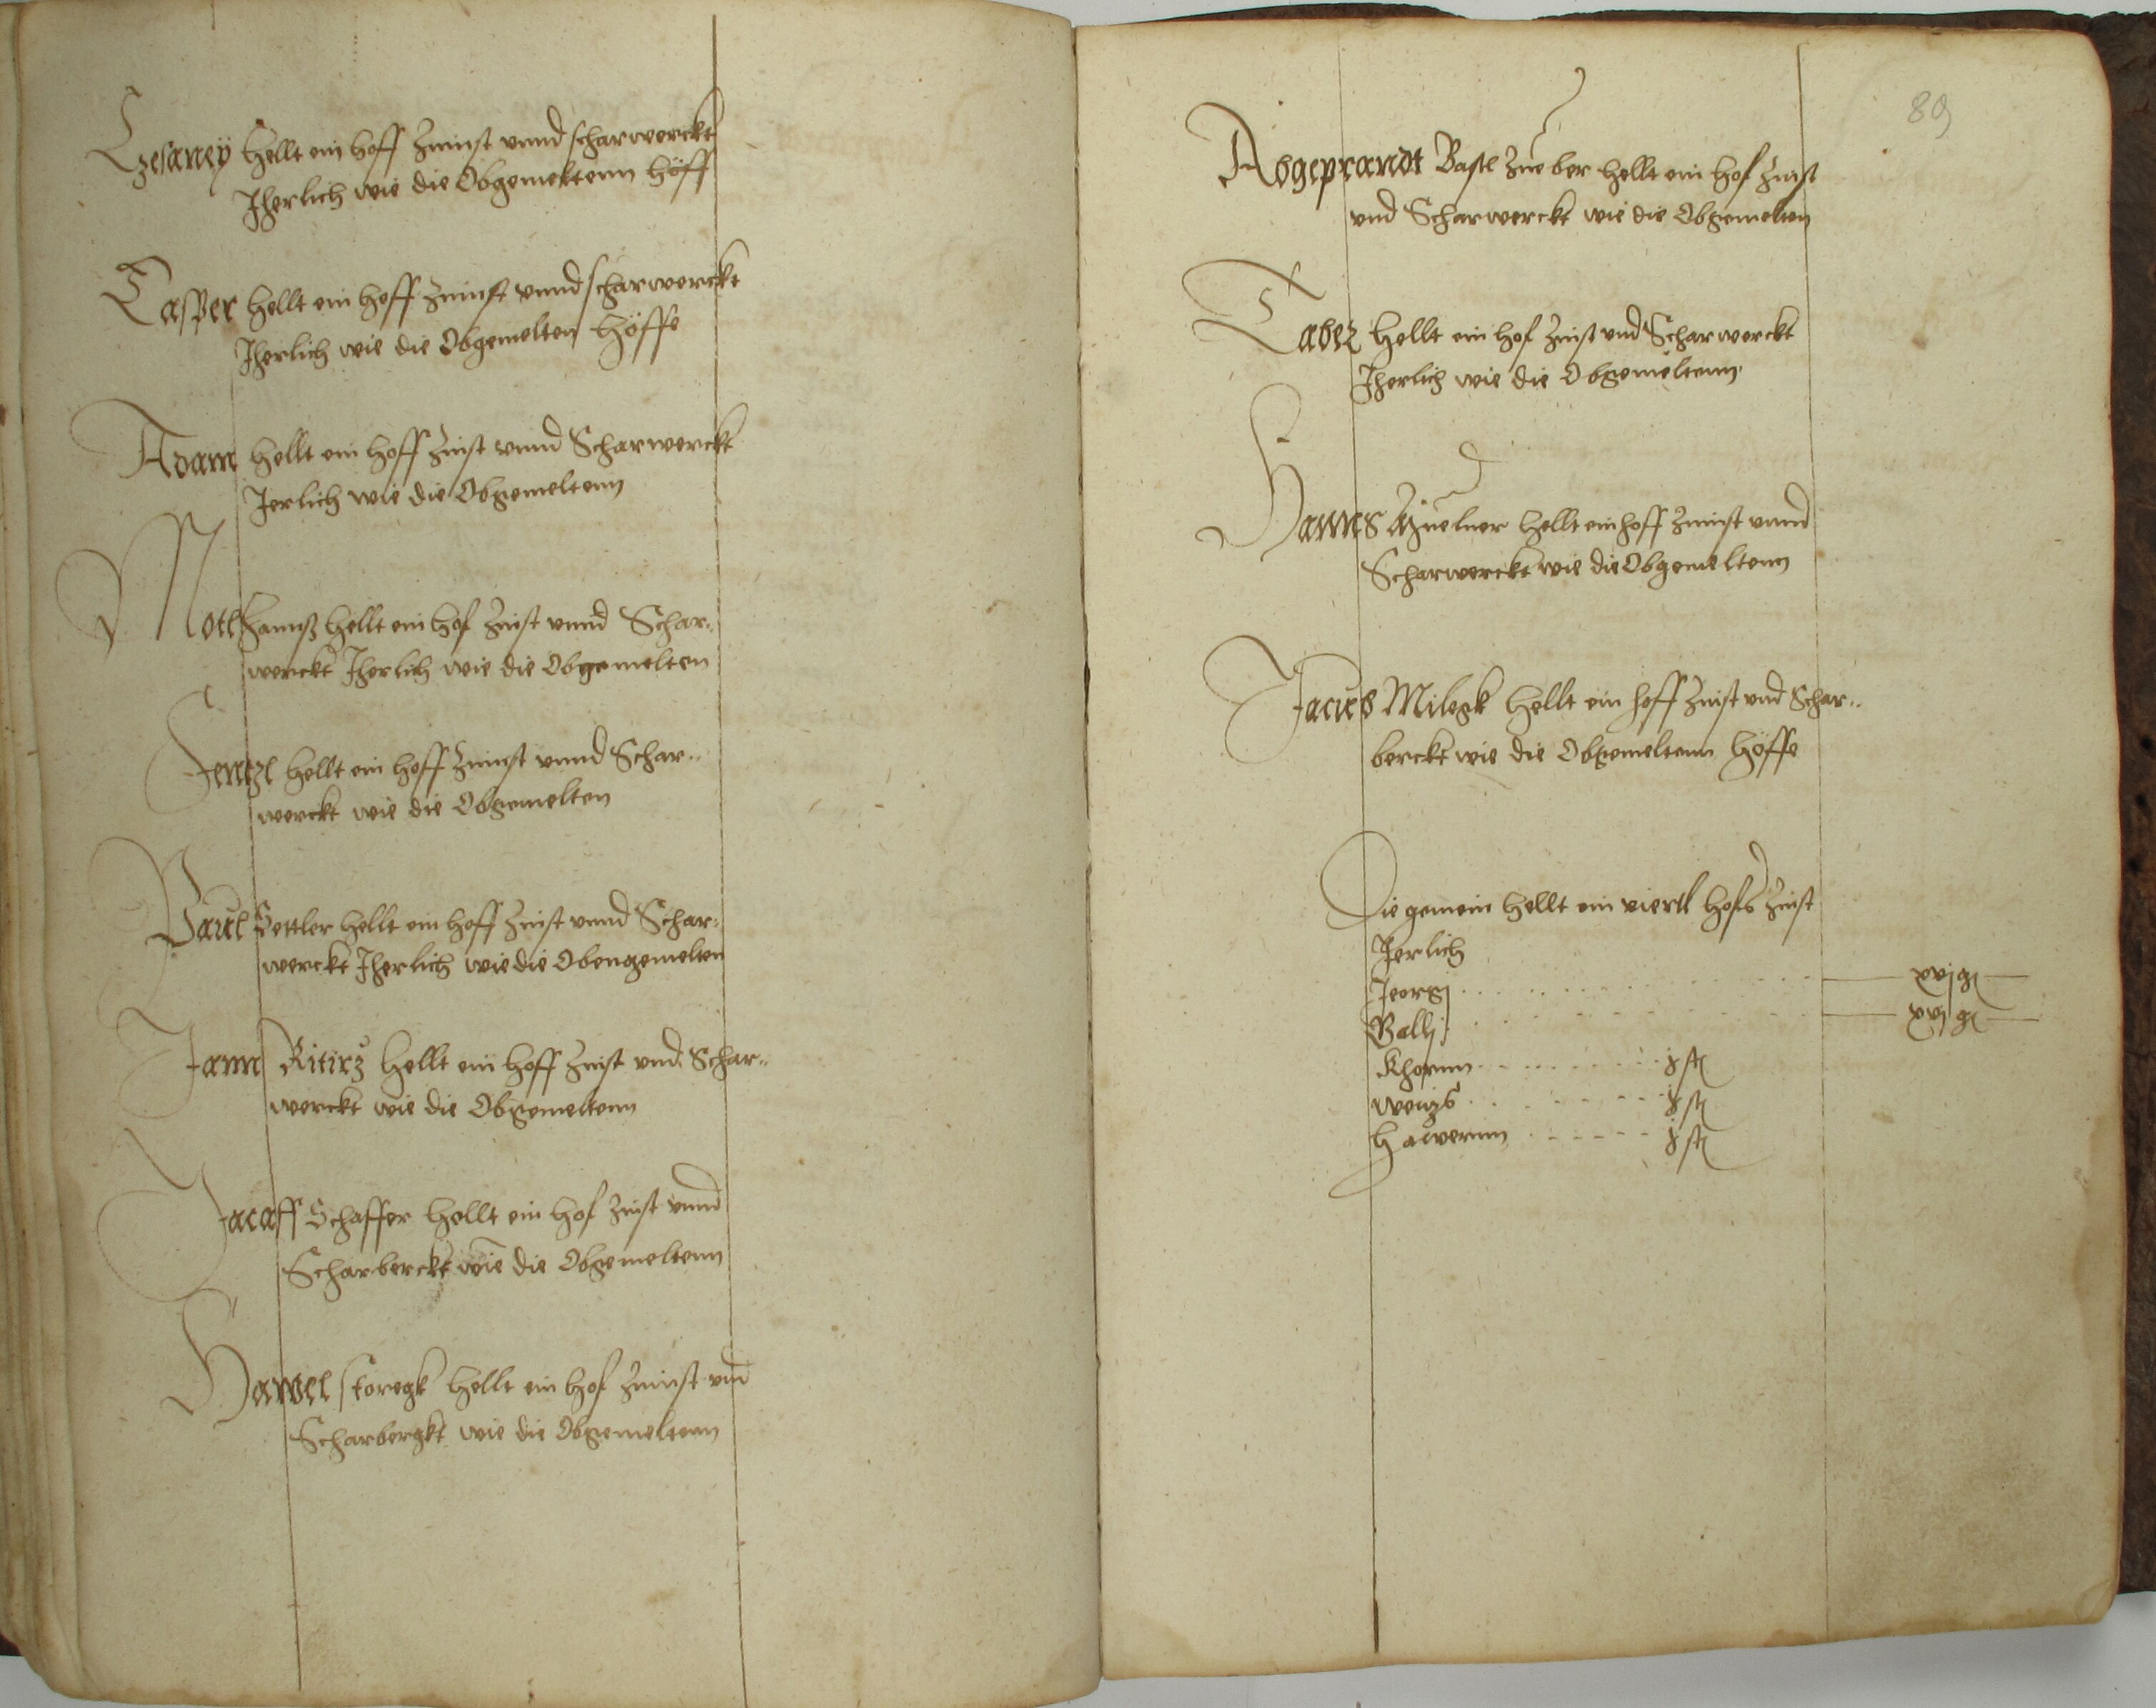 Czesaney hellt ein hoff Zinnst vnnd scharwerckt
Jherlich wie die Obgemeltenn höff
Casper hellt ein hoff Zinnst vnnd scharwerckt
Jherlich wie die Obgemelten höffe
Adam hellt ein hoff Zinst vnnd Scharwerckt
Jerlich wie die Obgemeltenn
Motl Hannß hellt ein hof Zinst vnnd Schar-
werckt Jherlich wie die Obgemelten
Jentzl hellt ein hoff Zinnst vnnd Schar-
werckt wie die Obgemelten
Paul Settler hellt ein hoff Zinst vnnd Schar-
werckt Jherlich wie die Obengemelten
Jann Ritirz hellt ein hoff Zinst vnd Schar-
werckt wie die Obgemeltenn
Jacaff Schaffer hellt ein hof Zinst vnnd
Scharberckt wie die Obgemeltenn
Hawel storegk hellt ein hof Zinnst vnd
Scharbergkt wie die Obgemeltenn
89
Abgeprandt Bastl Zueber hellt ein hof Zinst
vnd Scharwerckt wie die Obgemelten
Tabez hellt ein hof Zinst vnd Scharwerckt
Jherlich wie die Obgemeltenn
Hanns hellt ein hoff Zinnst vnnd
Scharwerckt wie die Obgemeltenn
Jacub Milegk hellt ein hoff Zinst vnd Schar-
berckt wie die Obgemeltenn höffe
Die gemein hellt ein viertl hofs Zinst
Jerlich
Jeorgj xvj g
Gallj xvj g
Khornn j st
Weitzs j st
Hawernn j st